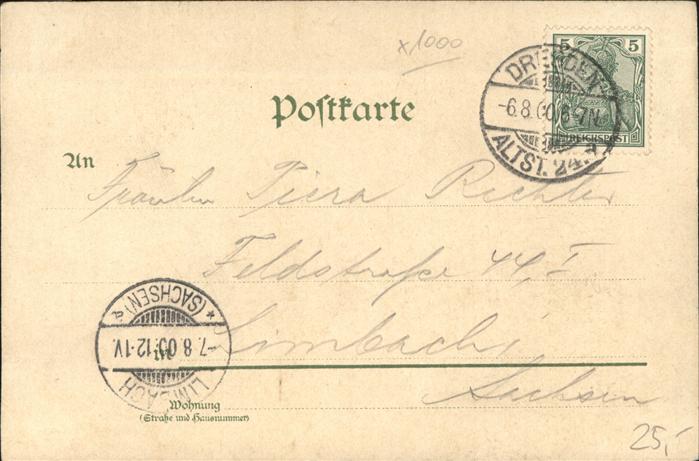 x1000
5 5
REICHSPOST
DRESDEN
-6.8.00.6-7N.
ALTST. 24. a
Postkarte
An
Fräulein Piera Richter
Feldstraße 44, I
in Limbach i.
Sachsen
* (SACHSEN) a
-7. 8 00 12-1V.
LIMBACH
Wohnung
(Straße und Hausnummer)
25,-